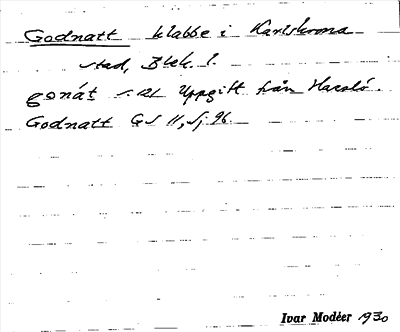 Godnatt klabbe i Karlskrona
stad, Blek. l.
gonát s. 121 Uppgift från Hasslö.
Godnatt GS 11, Sj 96
Ivar Modéer 1930